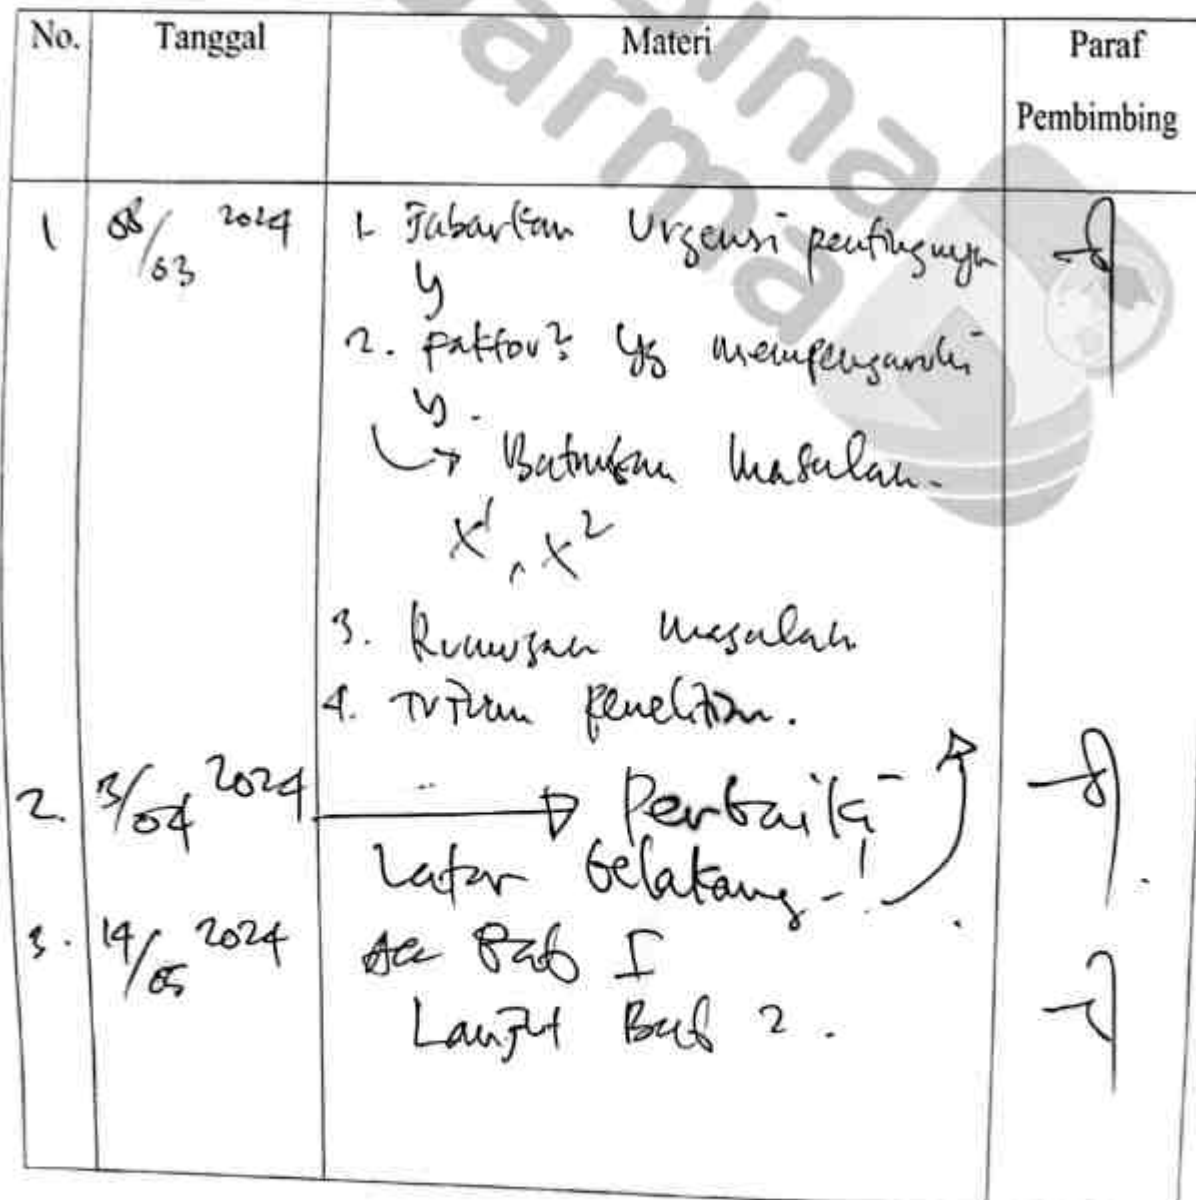 bina
darma
No. Tanggal Materi Paraf
Pembimbing
1 08/03 2024 1. Jabarkan Urgensi pentingnya
y
2. faktor2 yg mempengaruhi
y.
↳ Batasan Masalah.
X1, X2
3. Rumusan masalah
4. Tujuan penelitian.
2. 3/04 2024 → Perbaiki
Latar belakang
3. 14/05 2024 Acc Bab I
Lanjut Bab 2.